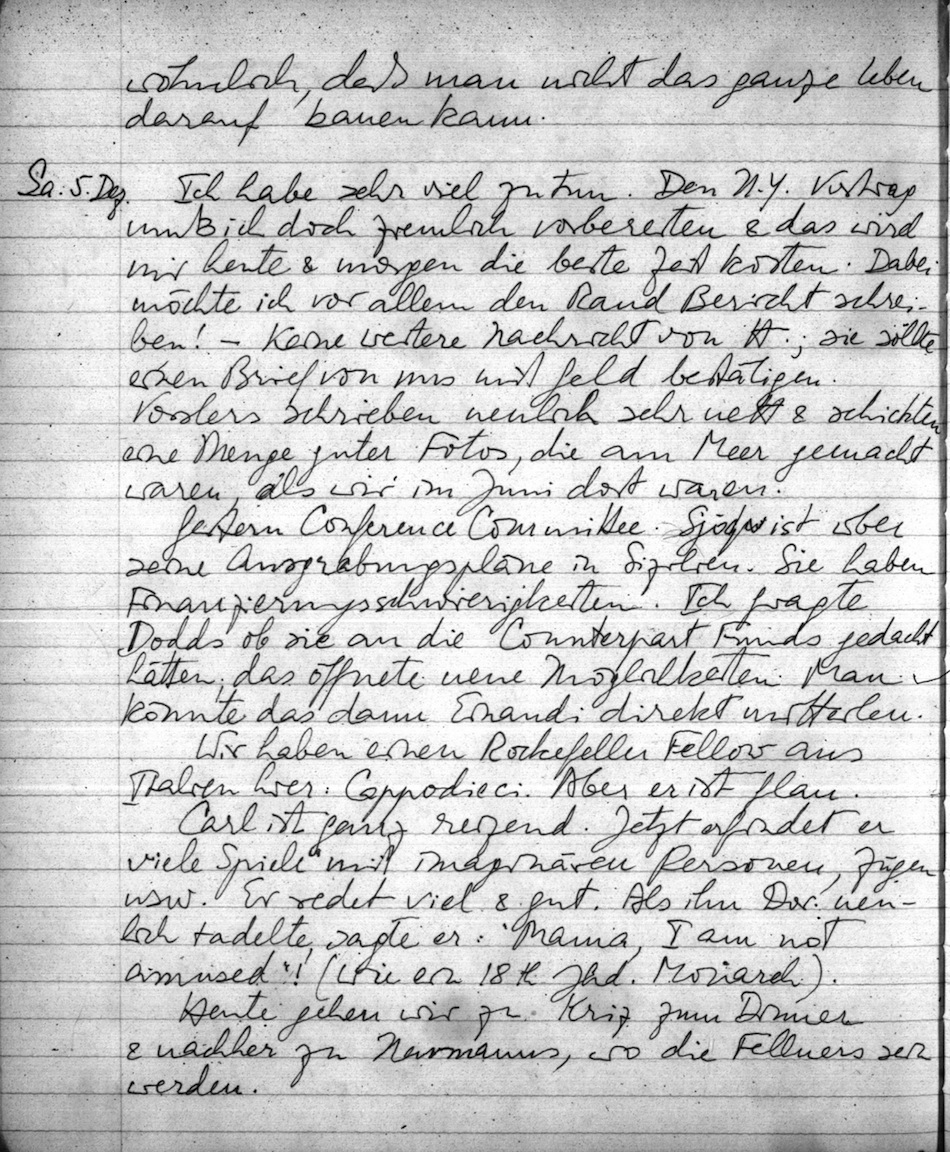 wöhnlich, daß man nicht das ganze Leben
darauf bauen kann.
Sa. 5. Dez. Ich habe sehr viel zu tun. Den N.Y. Vortrag
muß ich doch ziemlich vorbereiten & das wird
mir heute & morgen die beste Zeit kosten. Dabei
möchte ich vor allem den Rand Bericht schrei-
ben! – Keine weitere Nachricht von H.; sie sollte
einen Brief von uns mit Geld bestätigen.
Vosslers schrieben neulich sehr nett & schickten
eine Menge guter Fotos, die am Meer gemacht
waren, als wir im Juni dort waren.
Gestern Conference Committee. ist über
seine Ausgrabungspläne in Sizilien. Sie haben
Finanzierungsschwierigkeiten. Ich fragte
Dodds ob sie an die Counterpart Funds gedacht
hätten; das öffnete neue Möglichkeiten. Man
könnte das dann Einaudi direkt mitteilen.
Wir haben einen Rockefeller Fellow aus
Italien hier: Cappodieci. Aber er ist flau.
Carl ist ganz reizend. Jetzt erfindet er
viele Spiele mit imaginären Personen, Zügen
usw. Er redet viel & gut. Als ihn Dor. neu-
lich tadelte, sagte er: "Mama, I am not
amused"! (wie ein 18th Jhd. Monarch).
Heute gehen wir zu zum Dinner
& nachher zu Neumanns, wo die Fellners sein
werden.